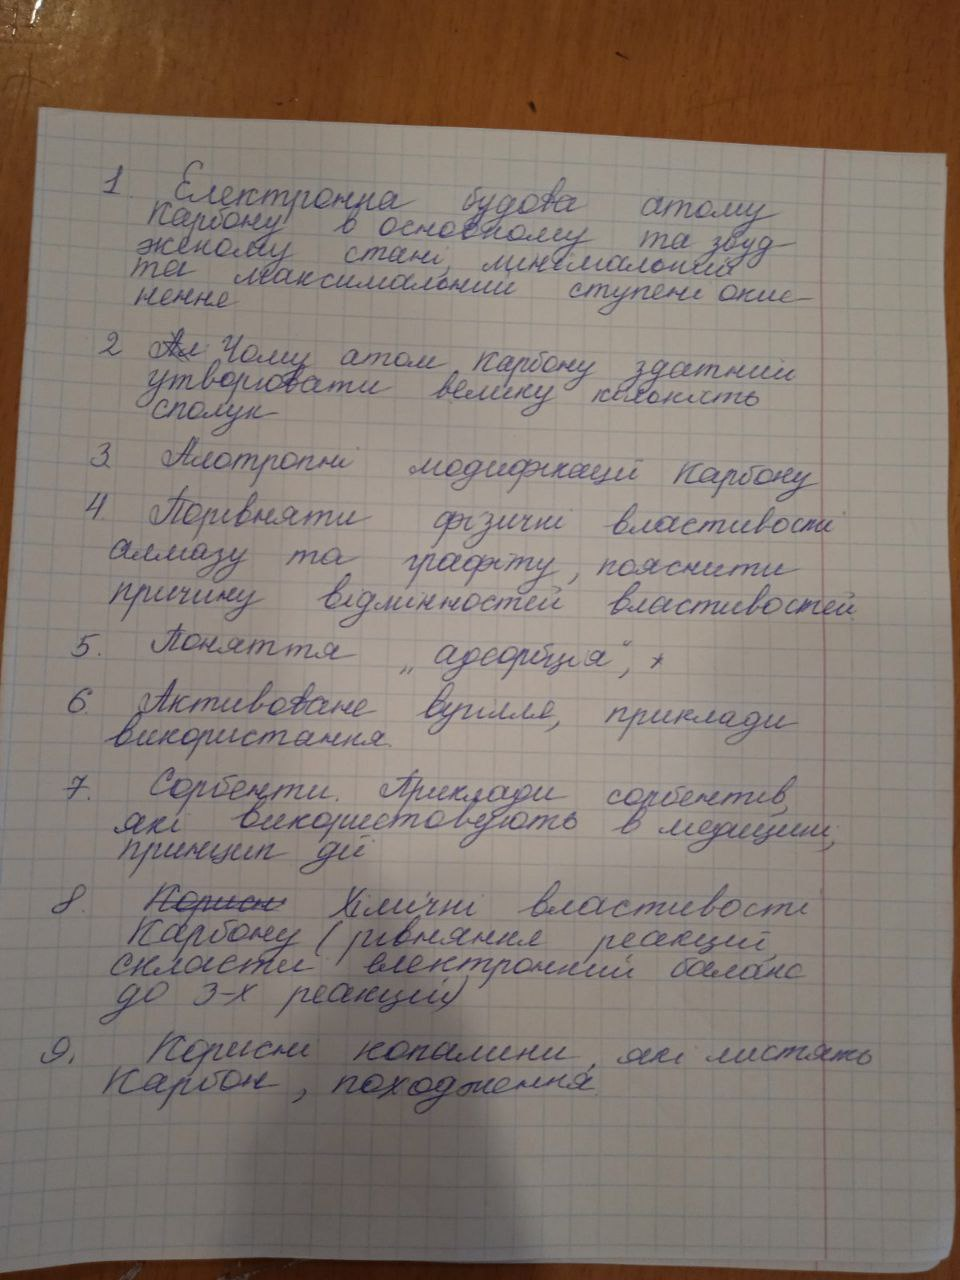 1. Електронна будова атому
Карбону в основному та збуд-
женому стані, мінімальний
та максимальний ступені окис-
нення
2 Ал Чому атом Карбону здатний
утворювати велику кількість
сполук
3. Алотропні модифікації Карбону
4. Порівняти фізичні властивості
алмазу та графіту, пояснити
причину відмінностей властивостей
5. Поняття „адсорбція", *
6. Активоване вугілля, приклади
використання.
7. Сорбенти. Приклади сорбентів,
які використовують в медицині,
принцип дії
8. Корисн Хімічні властивості
Карбону (рівняння реакцій,
скласти електронний баланс
до 3-х реакцій)
9. Корисні копалини, які містять
Карбон, походження.